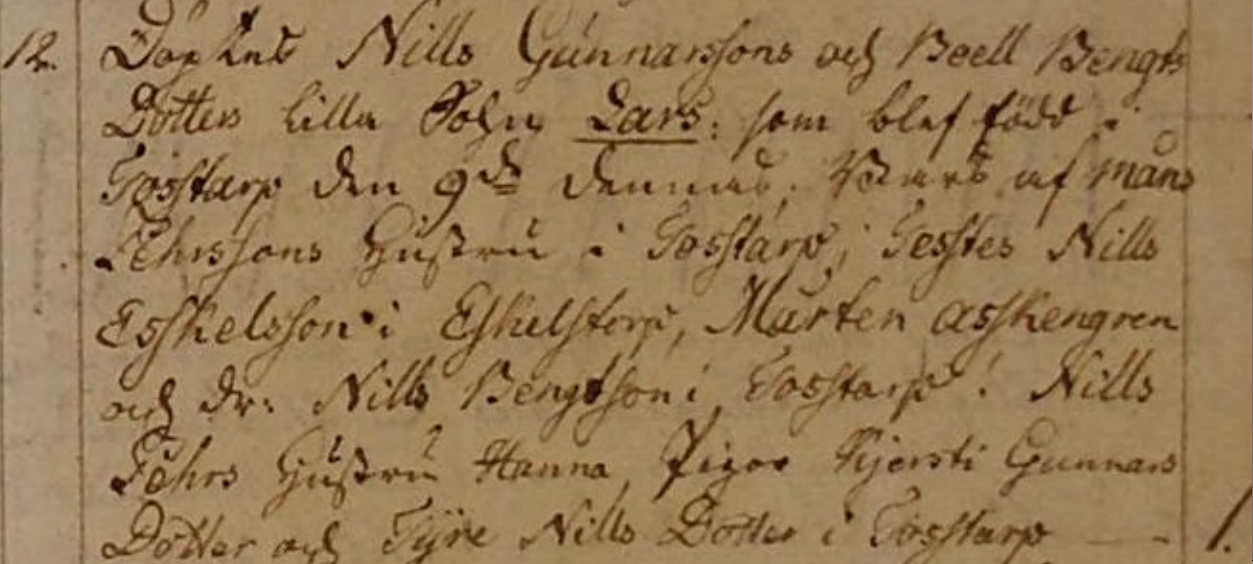 12. Döptes Nills Gunnarssons och Boell Bengts
Dotters lilla Sohn Lars: som blef född i
Tosstarp den 9de dennes. Bars af Måns
Pehrssons Hustru i Tosstarp; Testes Nills
Esskelsson i Eskelstorp, Mårten Asskengren
och dr: Nills Bengtson i Tosstarp! Nills
Pehrs Hustru Hanna, Pigor Kjersti Gunnars
Dotter och Tÿre Nills Dotter i Tosstarp — 1.